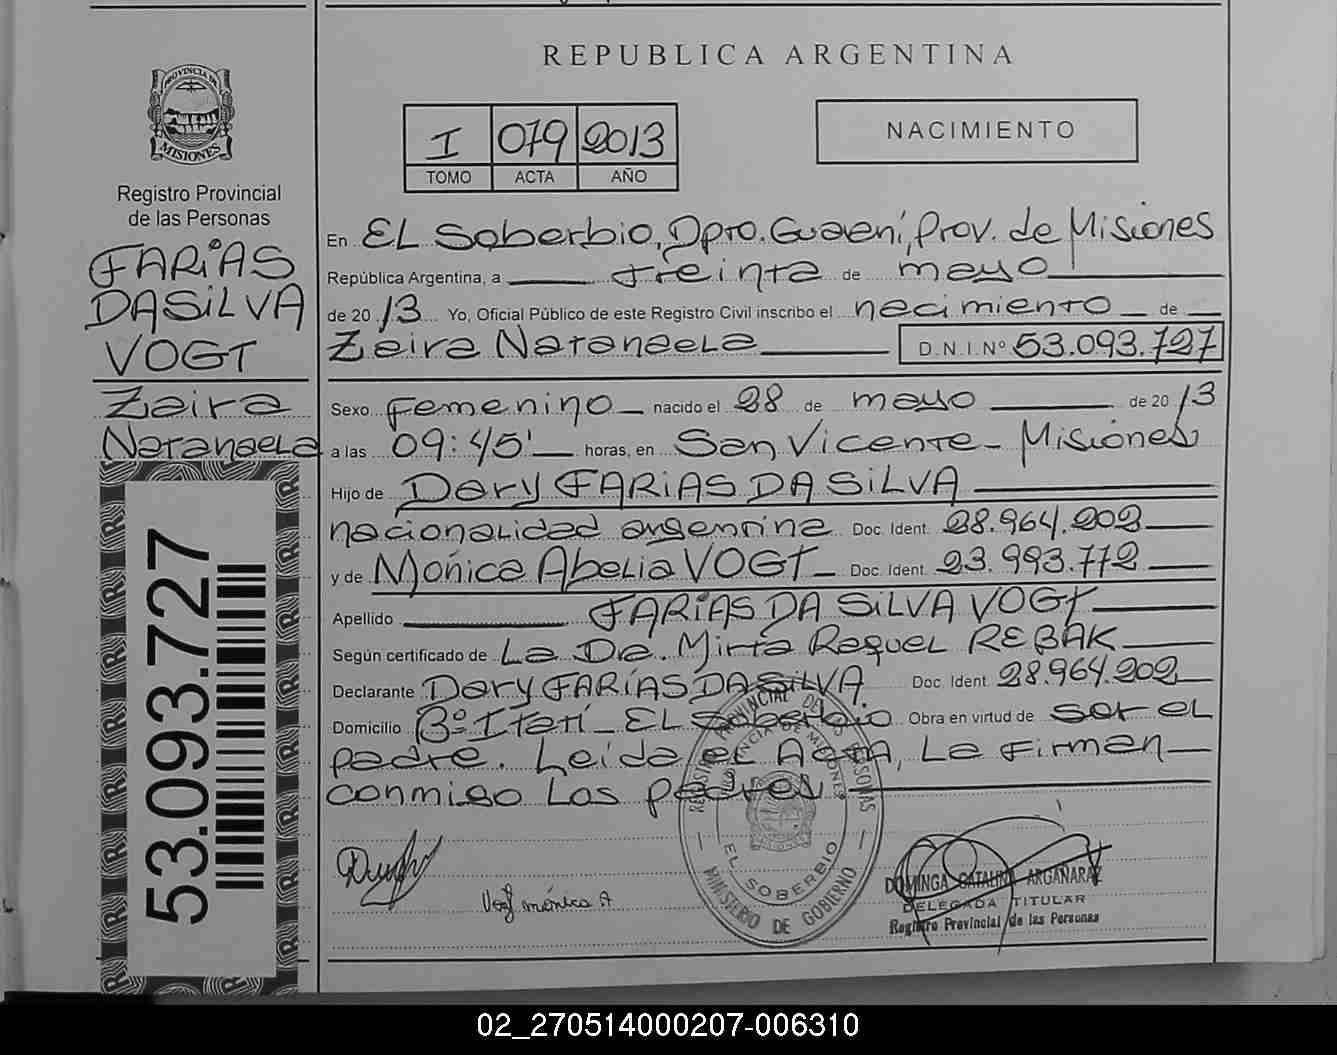 REPUBLICA ARGENTINA
PROVINCIA DE
MISIONES
Registro Provincial
de las Personas
FARIAS
DASILVA
VOGT
Zaira
Natanaela
53.093.727
I 079 2013
TOMO ACTA AÑO
NACIMIENTO
En EL Soberbio, Dpto. Guaraní, Prov. de Misiones
República Argentina, a treinta de mayo
de 2013 Yo, Oficial Público de este Registro Civil inscribo el nacimiento de
Zaira Natanaela D.N.I.Nº 53.093.727
Sexo Femenino nacido el 28 de mayo de 2013
a las 09:45' horas, en San Vicente - Misiones
Hijo de Dary FARIAS DA SILVA
nacionalidad argentina Doc. Ident. 28.964.202
y de Mónica Abelia VOGT Doc. Ident. 23.993.772
Apellido FARIAS DA SILVA VOGT
Según certificado de La Dra. Mirta Raquel REBAK
Declarante Dary FARÍAS DA SILVA Doc. Ident. 28.964.202
Domicilio Bº Itatí - EL Soberbio Obra en virtud de ser el
padre. Leída el Acta, La Firman
conmigo Los padres
Vogt mónica A
REGISTRO PROVINCIAL DE LAS PERSONAS
PROVINCIA DE MISIONES
EL SOBERBIO
MINISTERIO DE GOBIERNO
DOMINGA CATALINA ARGAÑARAZ
DELEGADA TITULAR
Registro Provincial de las Personas
02_270514000207-006310